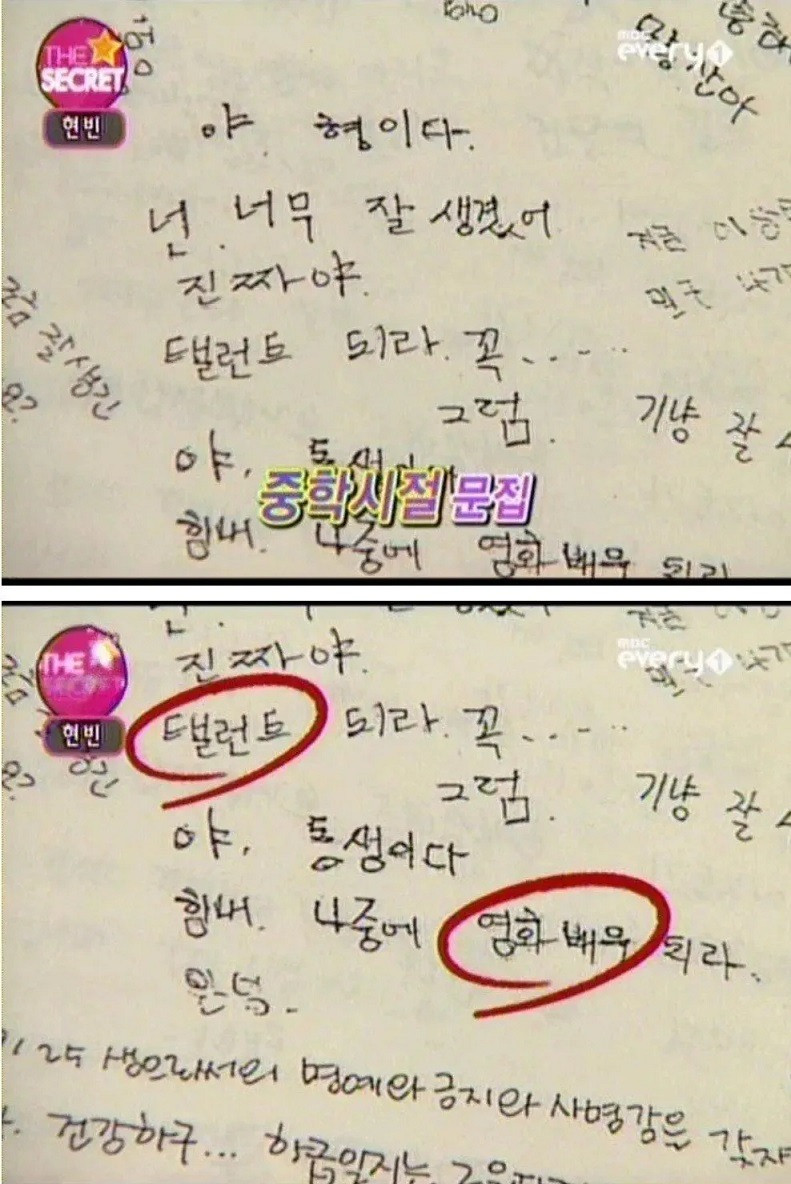 THE
SECRET
현빈
mbc
every1
망산아
야. 형이다.
넌. 너무 잘 생겼어
진짜야.
탤런트 되라. 꼭.....
잘생긴
그럼.
기냥 잘
야, 동생이다
중학시절 문집
힘내. 나중에 영화배우 되라
THE
SECRET
현빈
mbc
every1
진짜야.
탤런트 되라. 꼭.....
그럼.
기냥 잘
야, 동생이다
힘내. 나중에 영화배우 되라.
25 생으로서의 명예와 긍지와 사명감을 갖자
건강하구... 학급일지는